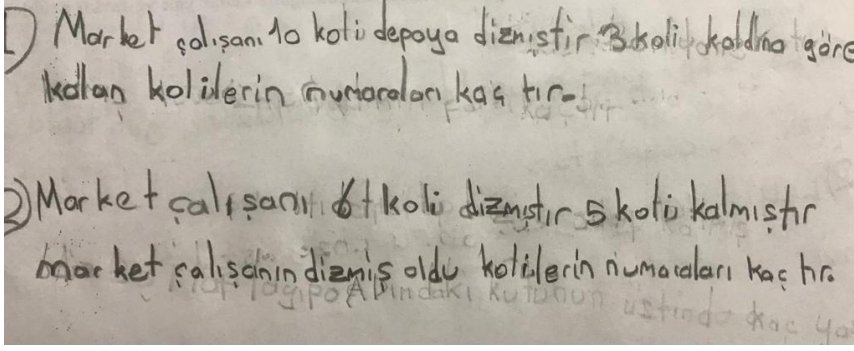 1) Market çalışanı 10 koli depoya dizmiştir 3 koli kaldına göre
kalan kolilerin numaraları kaç tır.
2) Market çalışanı 6 koli dizmıştır 5 koli kalmıştır
market çalışanın dizmiş oldu kolilerin numaraları kaç tır.